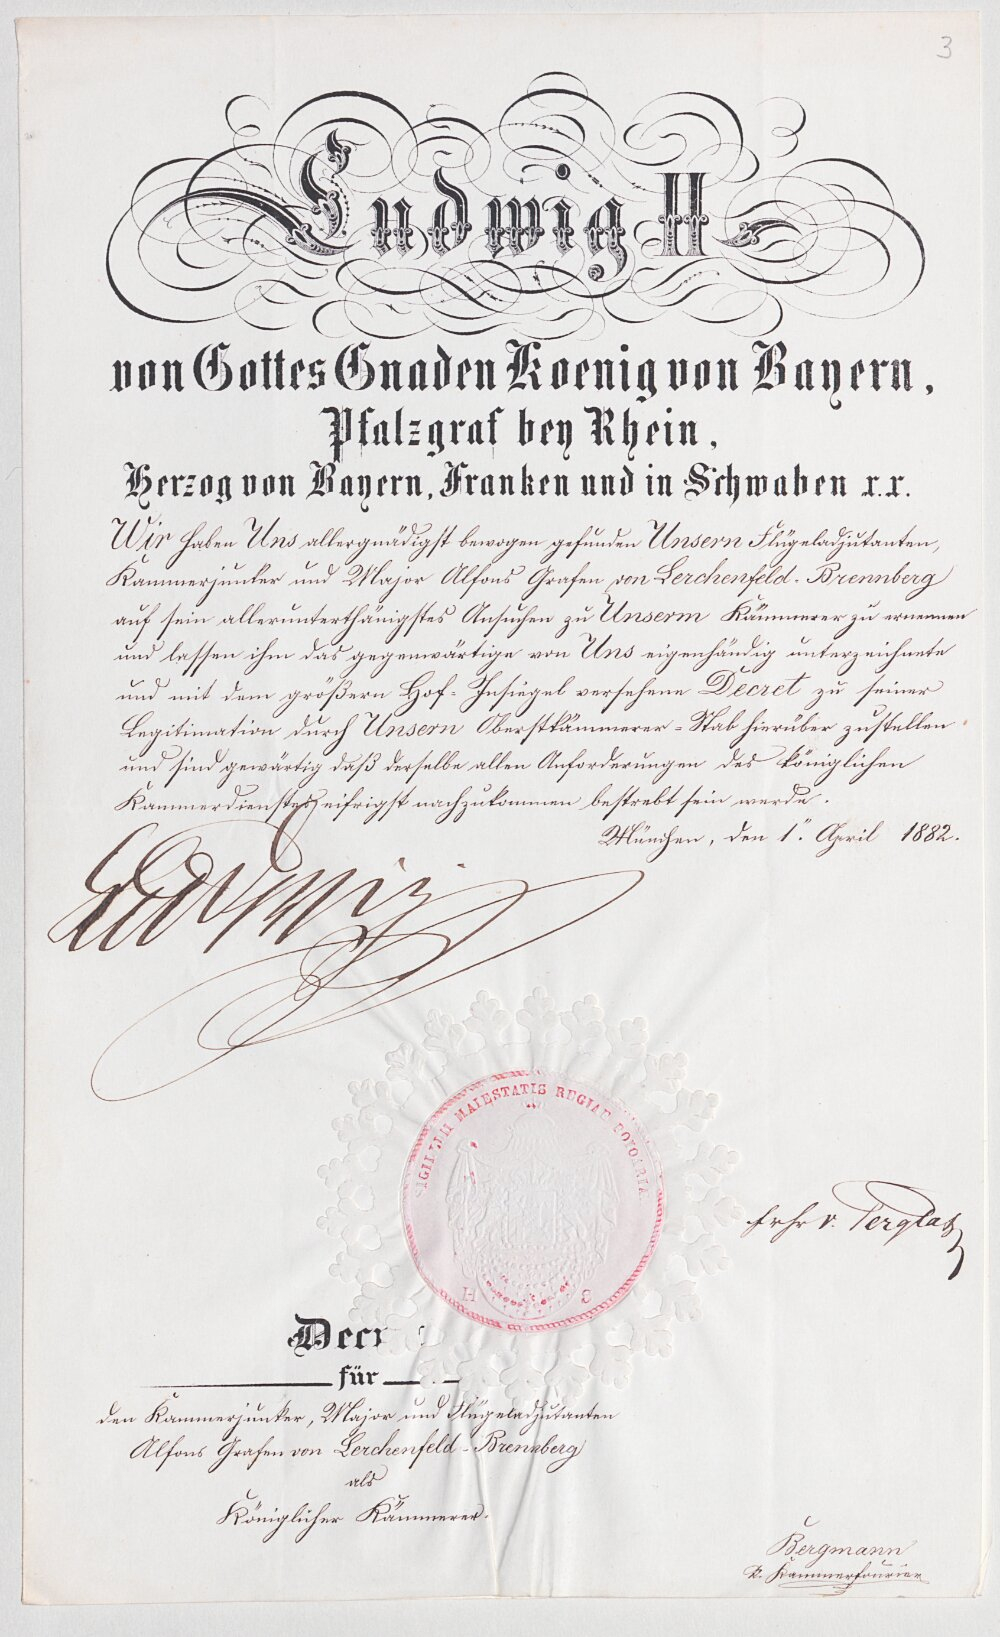 3
Ludwig II
von Gottes Gnaden Koenig von Bayern,
Pfalzgraf bey Rhein,
Herzog von Bayern, Franken und in Schwaben x.x.
Wir haben Uns allergnädigst bewogen gefunden Unsern Flügeladjutanten,
Kammerjunker und Major Alfons Grafen von Lerchenfeld-Brennberg
auf sein allerunterthänigstes Ansuchen zu Unserm Kämmerer zu ernennen
und lassen ihm das gegenwärtige von Uns eigenhändig unterzeichnete
und mit dem größern Hof-Insiegel versehene Decret zu seiner
Legitimation durch Unsern Oberstkämmerer-Stab hierüber zustellen
und sind gewärtig daß derselbe allen Anforderungen des königlichen
Kammerdienstes eifrigst nachzukommen bestrebt sein werde.
München, den 1. April 1882.
Ludwig
SIGILLUM MAIESTATIS REGIAE BOIOARIAE
H S
Frhr v. Pergla
Decr
für
den Kammerjunker, Major und Flügeladjutanten
Alfons Grafen von Lerchenfeld-Brennberg
als
Königlicher Kämmerer.
Bergmann
k. Kammerfourier